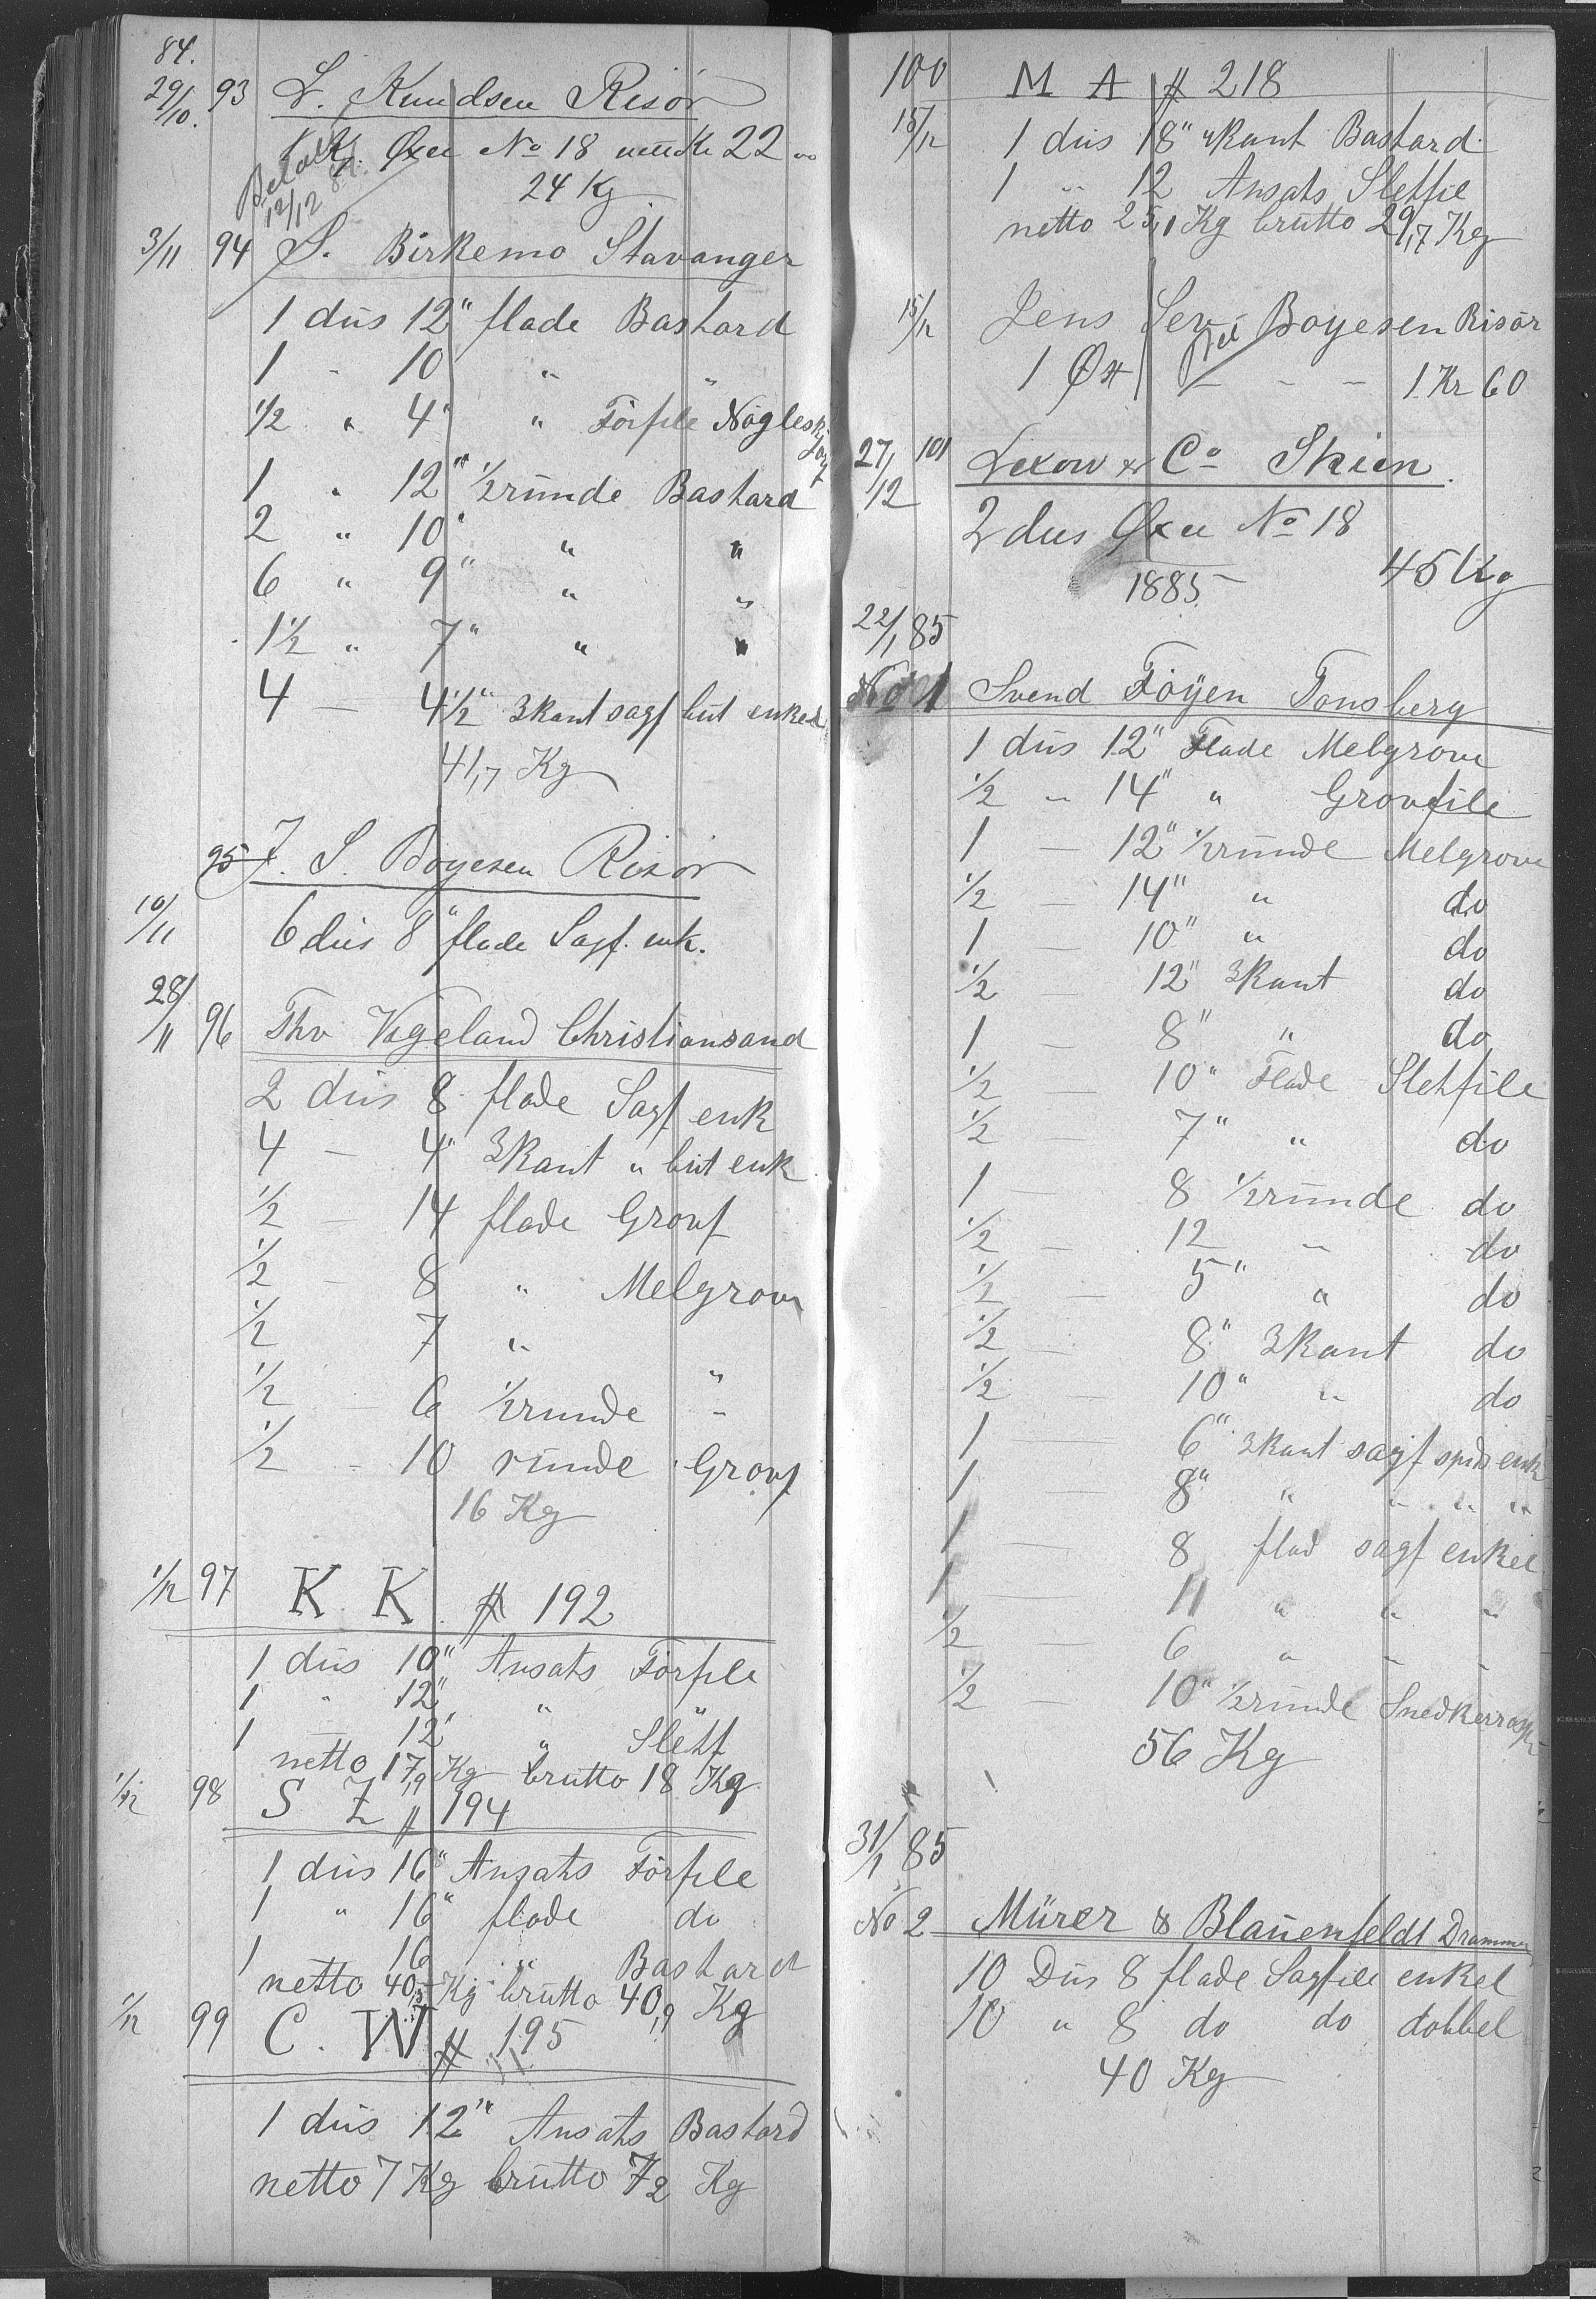 84.
29/10. 93 L. Knudsen Risör
1 K. Öxe No 18 Kr 22 00
24 Kg
Betalt 12/12 84.
3/11 94 S. Birkemo Stavanger
1 düs 12" flade Bastard
1 - 10 " "
1/2 " 4" " Förfile Nögleskj
1 " 12" 1/2 runde Bastard
2 " 10" " "
6 " 9" " "
1 1/2 " 7" " "
4 - 4 1/2" 3kant sagf but enkel
41,7 Kg
95 J. S. Boyesen Risör
10/11 6 düs 8" flade Sagf. enk.
28/11 96 Thv Vigeland Christiansand
2 düs 8 flade Sagf enk
4 - 4" 3kant " but enk
1/2 - 14 flade Grovf
1/2 - 8 " Melgrov
1/2 7 "
1/2 6 1/2runde "
1/2 - 10 runde Grovf
16 Kg
1/12 97 K. K. # 192
1 düs 10" Ansats Förfile
1 " 12" " "
1 - 12" " Slëtf
netto 17,9 Kg brutto 18 Kg
1/12 98 S Z # 194
1 düs 16" Ansats Förfile
1 " 16" flade do
1 16 " Bastard
netto 40,5 Kg brütto 40,9 Kg
1/12 99 C. W # 195
1 düs 12" Ansats Bastard
netto 7 Kg brütto 7,2 Kg
100 M A # 218
15/12 1 düs 18" 4kant Bastard
1 " 12 Ansats Sletfil
netto 25,1 Kg brutto 29,7 Kg
15/12 Jens Sev. Boyesen Risör
1 Öx - - - 1 Kr 60
27/12 101 Lexow & Co Skien.
2 dus Öxe No 18
45 Kg
1885
22/1 85
No 1 Svend Föyen Tonsberg
1 düs 12" Flade Melgrove
1/2 " 14" " Grovfile
1 - 12" 1/2runde Melgrove
1/2 - 14" " do
1 - 10" " do
1/2 - 12" 3Kant do
1 - 8" " do
1/2 - 10" Flade Sletfile
1/2 - 7" " do
1 - 8 1/2runde do
1/2 - 12 " do
1/2 - 5" " do
1/2 - 8" 3Kant do
1/2 - 10" " do
1 - 6" 3kant sagf spids enk
1 8" " " " "
1 - 8 flad sagf enkel
1 - 11 " " "
1/2 - 6 " " "
1/2 - 10" 1/2runde Snedkerrasp
56 Kg
31/1 85
No 2 Mürer & Blaüenfeldt Drammen
10 Düs 8 flade Sagfile enkel
10 " 8 do do dobbel
40 Kg